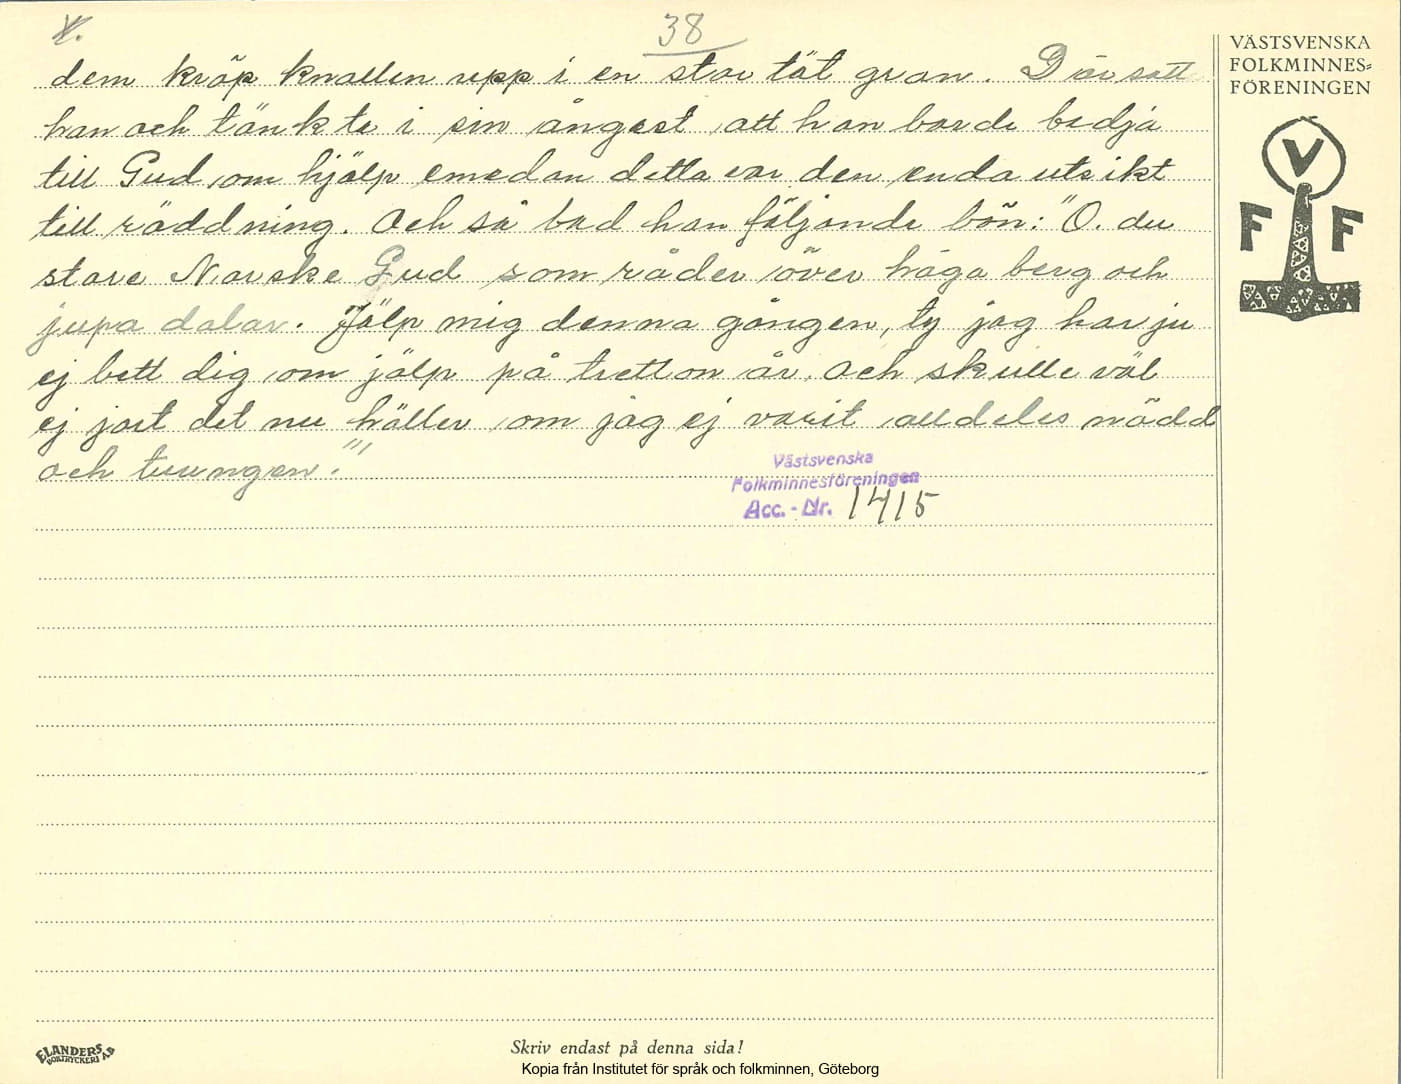 38
dem kröp knallen upp i en stor tät gran. Där satt
han och tänkte i sin ångest att han borde bedja
till Gud om hjälp emedan detta var den enda utsikt
till räddning. Och så bad han följande bön: "O. du
store Norske Gud som råder över höga berg och
jupa dalar. Jälp mig denna gången, ty jag har ju
ej bett dig om jälp på tretton år. Och skulle väl
ej jort det nu häller om jag ej varit alldeles nödd
och tvungen."
Västsvenska
Folkminnesföreningen
Acc. - Nr. 1415
VÄSTSVENSKA
FOLKMINNES-
FÖRENINGEN
V
F F
ELANDERS
BOKTRYCKERI AB
Skriv endast på denna sida!
Kopia från Institutet för språk och folkminnen, Göteborg